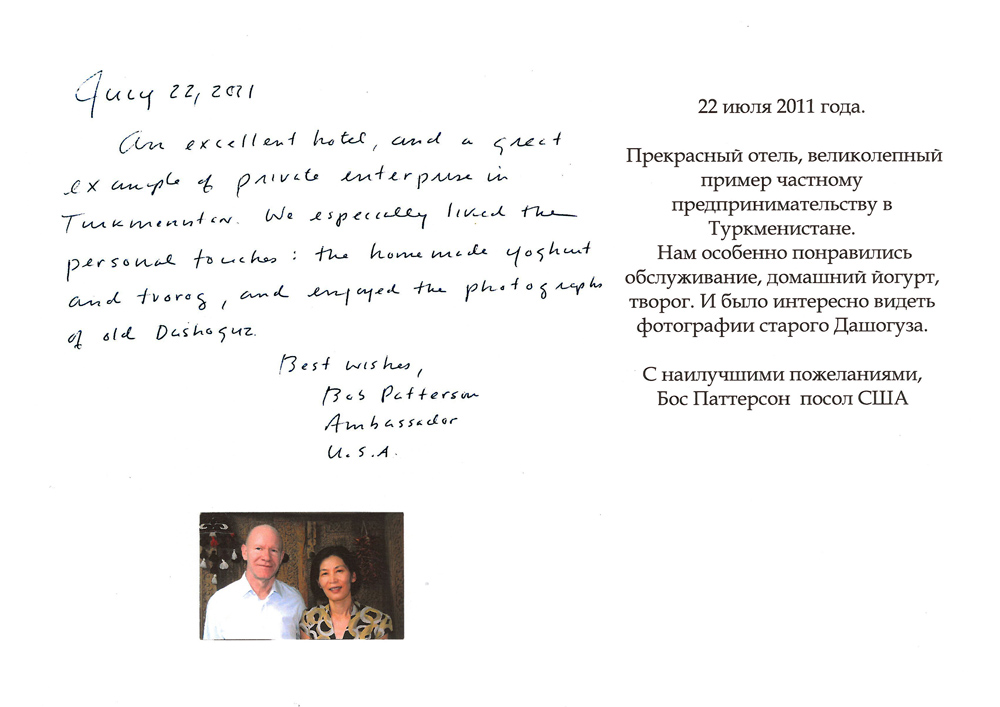 July 22, 2011
An excellent hotel, and a great
example of private enterprise in
Turkmenistan. We especially liked the
personal touches: the homemade yoghurt
and tvorog, and enjoyed the photographs
of old Dashoguz.
Best wishes,
Bob Patterson
Ambassador
U.S.A.
22 июля 2011 года.
Прекрасный отель, великолепный
пример частному
предпринимательству в
Туркменистане.
Нам особенно понравились
обслуживание, домашний йогурт,
творог. И было интересно видеть
фотографии старого Дашогуза.
С наилучшими пожеланиями,
Бос Паттерсон посол США